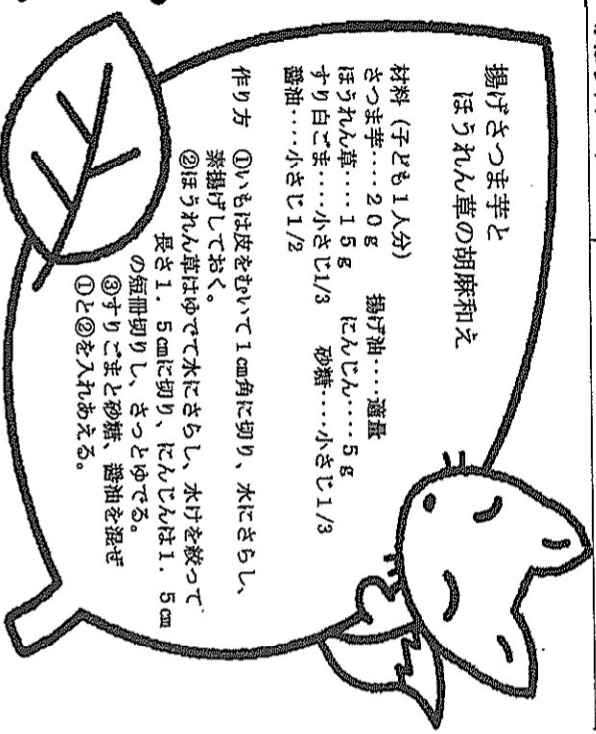 揚げさつま芋と
ほうれん草の胡麻和え
材料（子ども１人分）
さつま芋‥‥２０ｇ　揚げ油‥‥適量
ほうれん草‥‥１５ｇ　にんじん‥‥５ｇ
すり白ごま‥‥小さじ1/3　砂糖‥‥小さじ１/３
醤油‥‥小さじ１/２
作り方　①いもは皮をむいて１㎝角に切り、水にさらし、
素揚げしておく。
②ほうれん草はゆでて水にさらし、水けを絞って
長さ１．５㎝に切り、にんじんは１．５㎝
の短冊切りし、さっとゆでる。
③すりごまと砂糖、醤油を混ぜ
①と②を入れあえる。